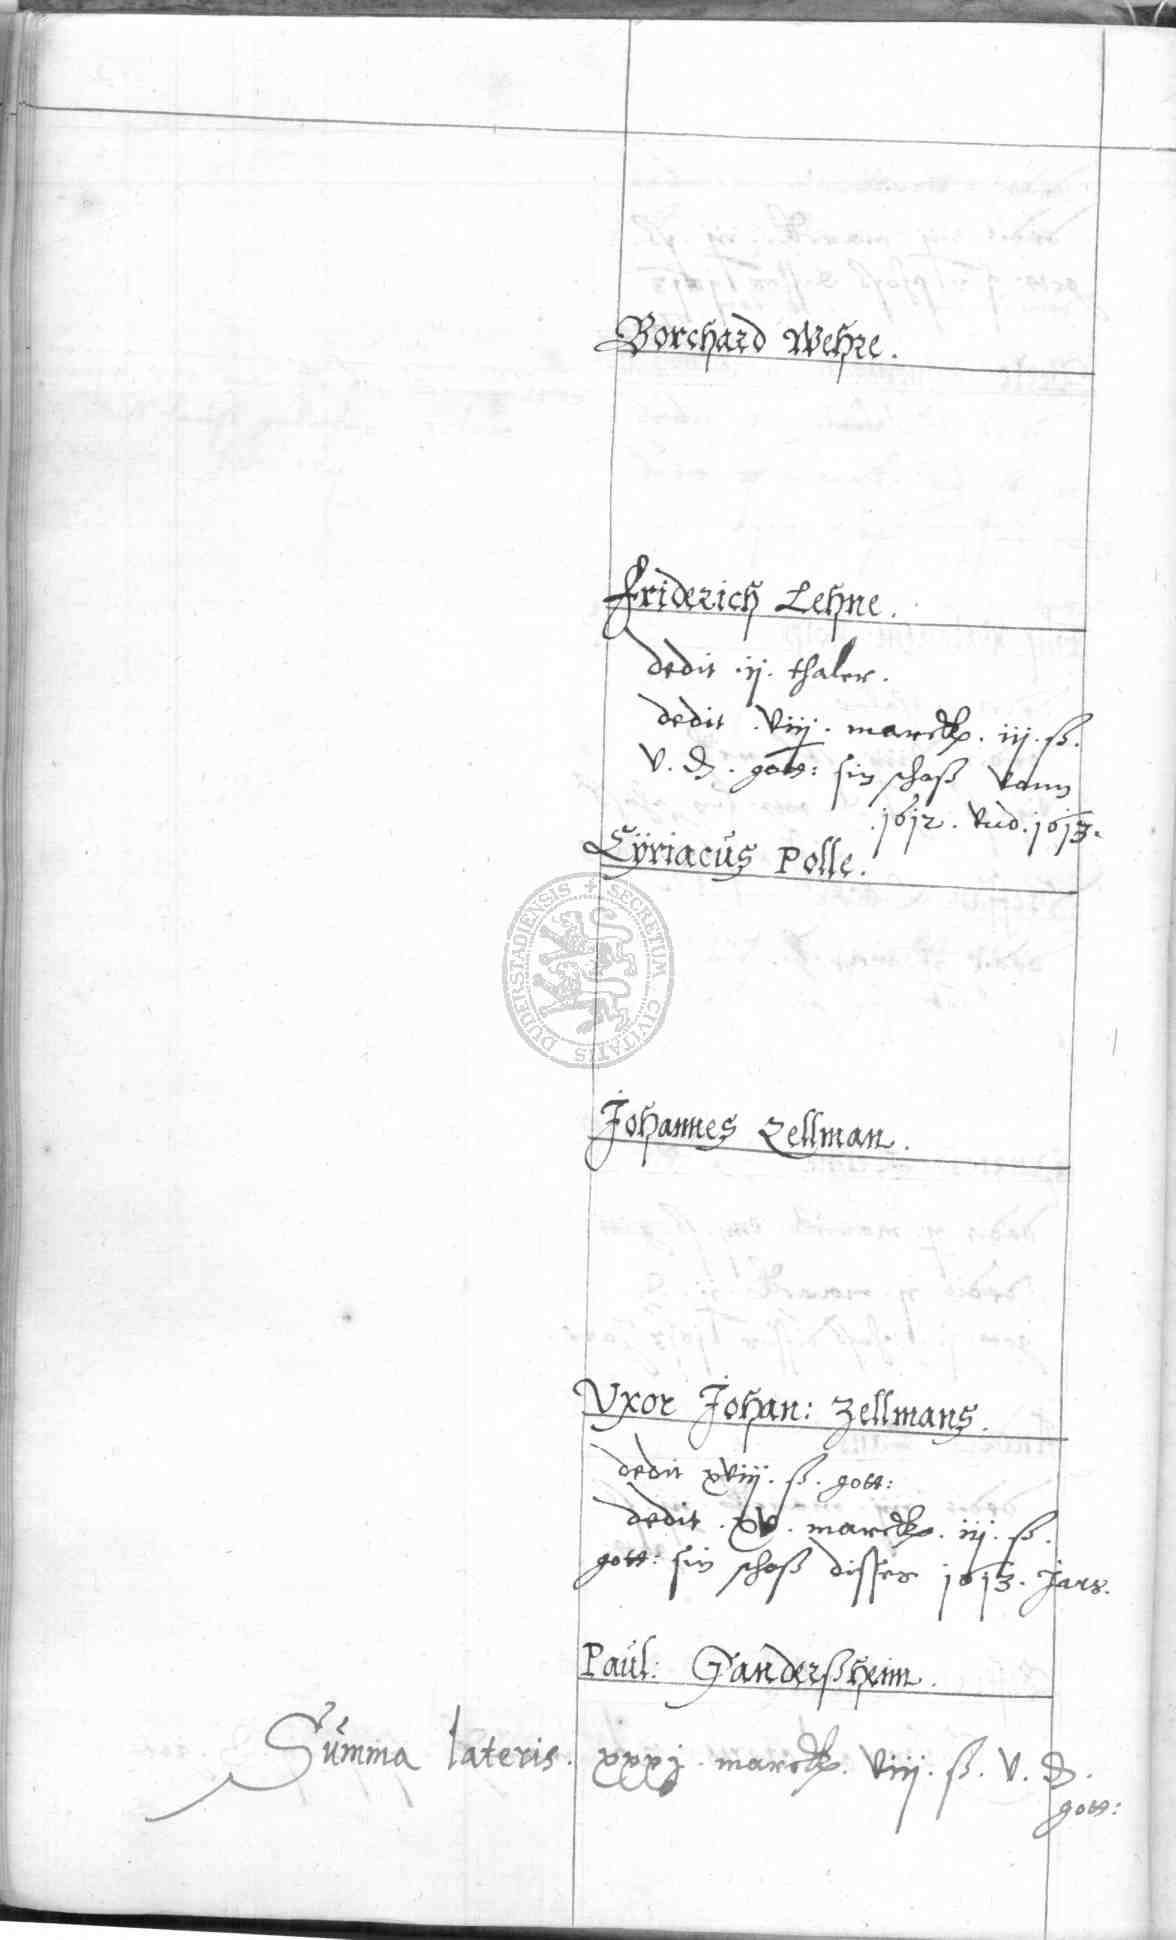 Borchard Wehre.
Friderich Lehne.
dedit .ij. thaler.
dedit .viij. marck. iij. ß.
v. d. gott: sin schoß vonn
.1612. vnd .1613.
Cÿriacus Polle.
SECRETUM CIVITATIS DUDERSTADIENSIS
Johannes Zellman.
Vxor Johan: Zellmans.
dedit xviij. ß. gott:
dedit .xv. marck. iij. ß.
gott: sin schoß disses 1613. Jars.
Paul: Ganderßheim.
Summa lateris. xxxj. marck. viij. ß. v. d.
gott: